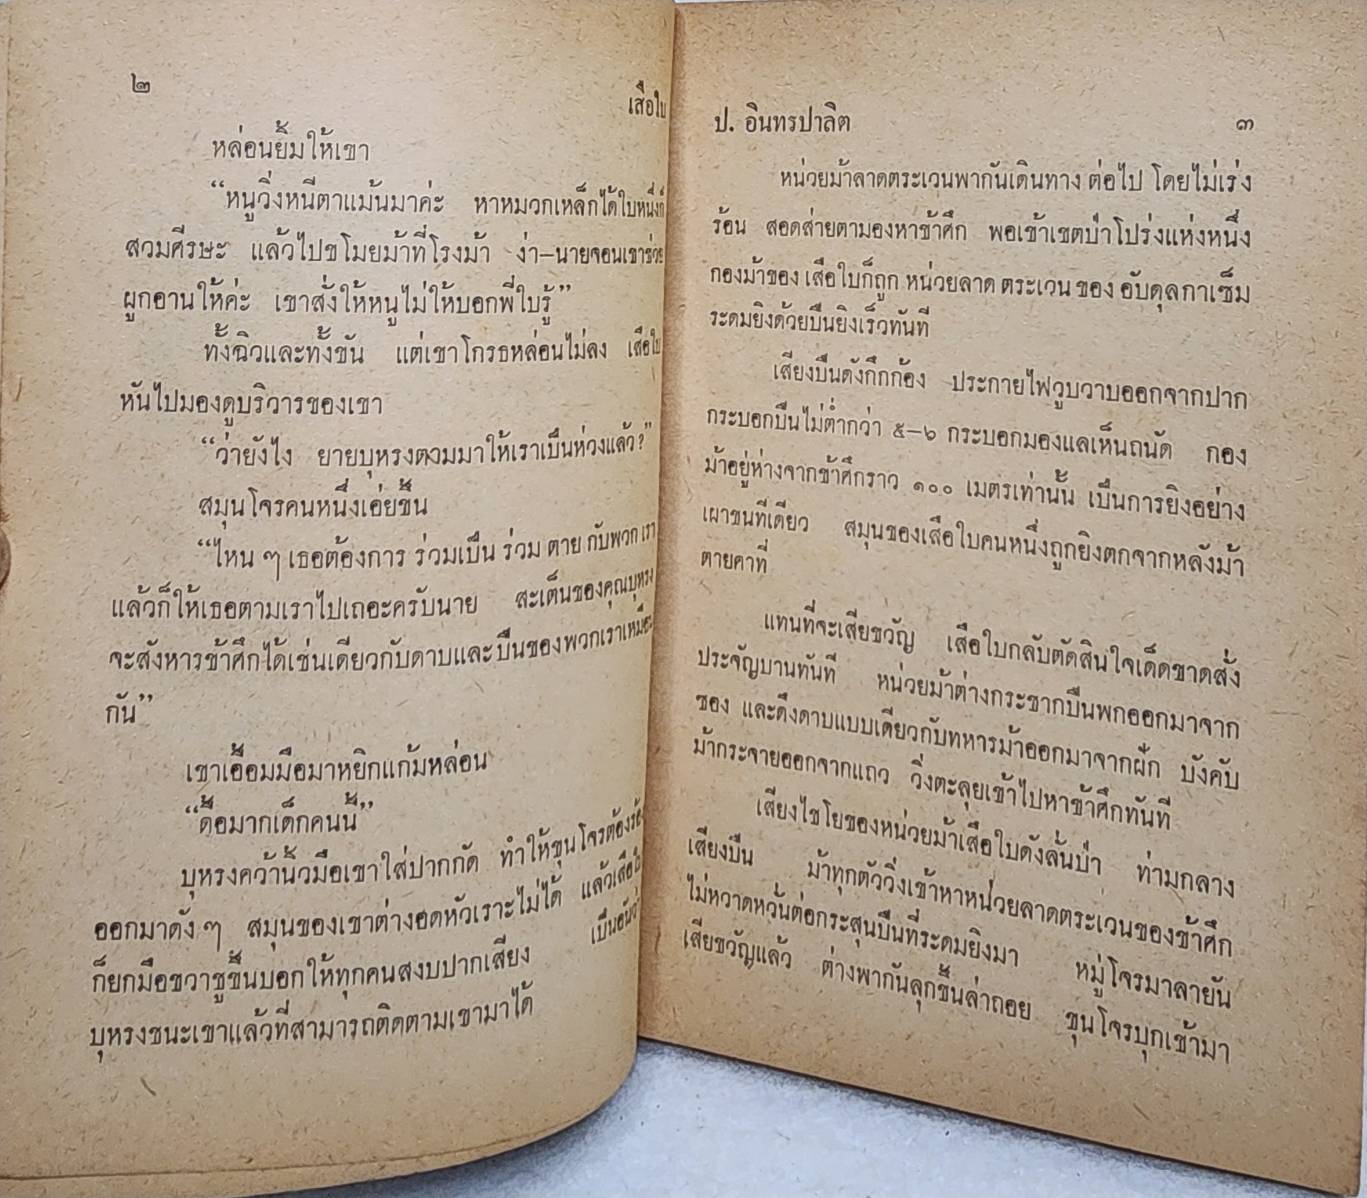 ๒
เสือใบ
หล่อนยิ้มให้เขา
“หนูวิ่งหนีตาแม้นมาค่ะ หาหมวกเหล็กได้ใบหนึ่งก็
สวมศีรษะ แล้วไปขโมยม้าที่โรงม้า ง่า–นายจอนเขาช่วย
ผูกอานให้ค่ะ เขาสั่งให้หนูไม่ให้บอกพี่ใบรู้”
ทั้งฉิวและทั้งขัน แต่เขาโกรธหล่อนไม่ลง เสือใบ
หันไปมองดูบริวารของเขา
“ว่ายังไง ยายบุหรงตามมาให้เราเป็นห่วงแล้ว?”
สมุนโจรคนหนึ่งเอ่ยขึ้น
“ไหน ๆ เธอต้องการ ร่วมเป็น ร่วม ตาย กับพวก เรา
แล้วก็ให้เธอตามเราไปเถอะครับนาย สะเต็นของคุณบุหรง
จะสังหารข้าศึกได้เช่นเดียวกับดาบและปืนของพวกเราเหมือน
กัน”
เขาเอื้อมมือมาหยิกแก้มหล่อน
“ดื้อมากเด็กคนนี้”
บุหรงคว้านิ้วมือเขาใส่ปากกัด ทำให้ขุนโจรต้องร้อง
ออกมาดัง ๆ สมุนของเขาต่างอดหัวเราะไม่ได้ แล้วเสือใบ
ก็ยกมือขวาชูขึ้นบอกให้ทุกคนสงบปากเสียง เป็นอันว่า
บุหรงชนะเขาแล้วที่สามารถติดตามเขามาได้
ป. อินทรปาลิต
๓
หน่วยม้าลาดตระเวนพากันเดินทาง ต่อไป โดยไม่เร่ง
ร้อน สอดส่ายตามองหาข้าศึก พอเข้าเขตป่าโปร่งแห่งหนึ่ง
กองม้าของ เสือใบก็ถูก หน่วยลาด ตระเวน ของ อับดุลกาเซ็ม
ระดมยิงด้วยปืนยิงเร็วทันที
เสียงปืนดังกึกก้อง ประกายไฟวูบวาบออกจากปาก
กระบอกปืนไม่ต่ำกว่า ๕–๖ กระบอกมองแลเห็นถนัด กอง
ม้าอยู่ห่างจากข้าศึกราว ๑๐๐ เมตรเท่านั้น เป็นการยิงอย่าง
เผาขนทีเดียว สมุนของเสือใบคนหนึ่งถูกยิงตกจากหลังม้า
ตายคาที่
แทนที่จะเสียขวัญ เสือใบกลับตัดสินใจเด็ดขาดสั่ง
ประจัญบานทันที หน่วยม้าต่างกระชากปืนพกออกมาจาก
ซอง และดึงดาบแบบเดียวกับทหารม้าออกมาจากฝัก บังคับ
ม้ากระจายออกจากแถว วิ่งตะลุยเข้าไปหาข้าศึกทันที
เสียงไชโยของหน่วยม้าเสือใบดังลั่นป่า ท่ามกลาง
เสียงปืน ม้าทุกตัววิ่งเข้าหาหน่วยลาดตระเวนของข้าศึก
ไม่หวาดหวั่นต่อกระสุนปืนที่ระดมยิงมา หมู่โจรมาลายัน
เสียขวัญแล้ว ต่างพากันลุกขึ้นล่าถอย ขุนโจรบุกเข้ามา